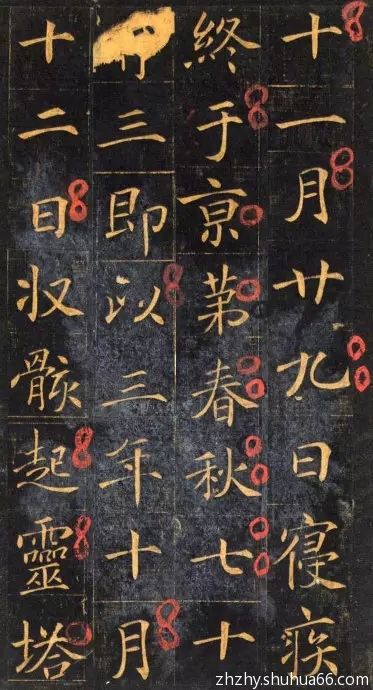 十一月廿九日寢疾
終于亰苐春秋七十
三即以三年十月
十二日収骸起靈塔
zhzhy.shuhua66.com